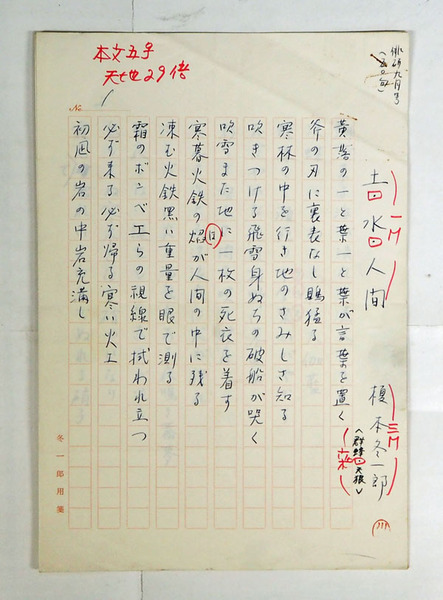 俳研九月号
土 水 人間
三M
榎本冬一郎
〈群蜂 天狼〉
黄落の一と葉一と葉が言葉を置く
斧の刃に裏表なし鵙猛る
寒林の中を行き地のさみしさ知る
吹きつける飛雪身ぬちの破船が哭く
吹雪また地に一枚の死衣を着す
寒暮火鉄の焔が人間の中に残る
凍む火鉄黒い重量を眼で測る
霜のボンベ工らの視線で拭われ立つ
必ず来る必ず帰る寒い火工
初凪の岩の中岩充満し
本文五号
天地29倍
No.
冬一郎用箋